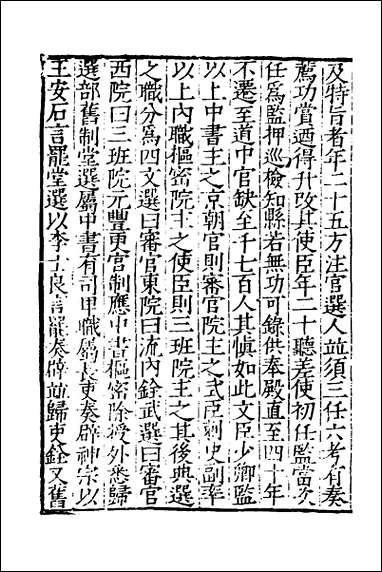 及特旨者年二十五方注官選人竝須三任六考有奏
薦功賞迺得升改其使臣年二十聽差使初任監當次
任爲監押巡檢知縣若無功可錄供奉殿直至四十年
不遷至道中官缺至千七百人其慎如此文臣少卿監
以上中書主之京朝官則審官院主之武臣刺史副率
以上內職樞密院主之使臣則三班院主之其後典選
之職分爲四文選曰審官東院曰流內銓武選曰審官
西院曰三班院元豐更官制應中書樞密除授外悉歸
選部舊制堂選屬中書有司甲職屬長吏奏辟神宗以
王安石言罷堂選以李士良言罷奏辟竝歸吏銓又舊